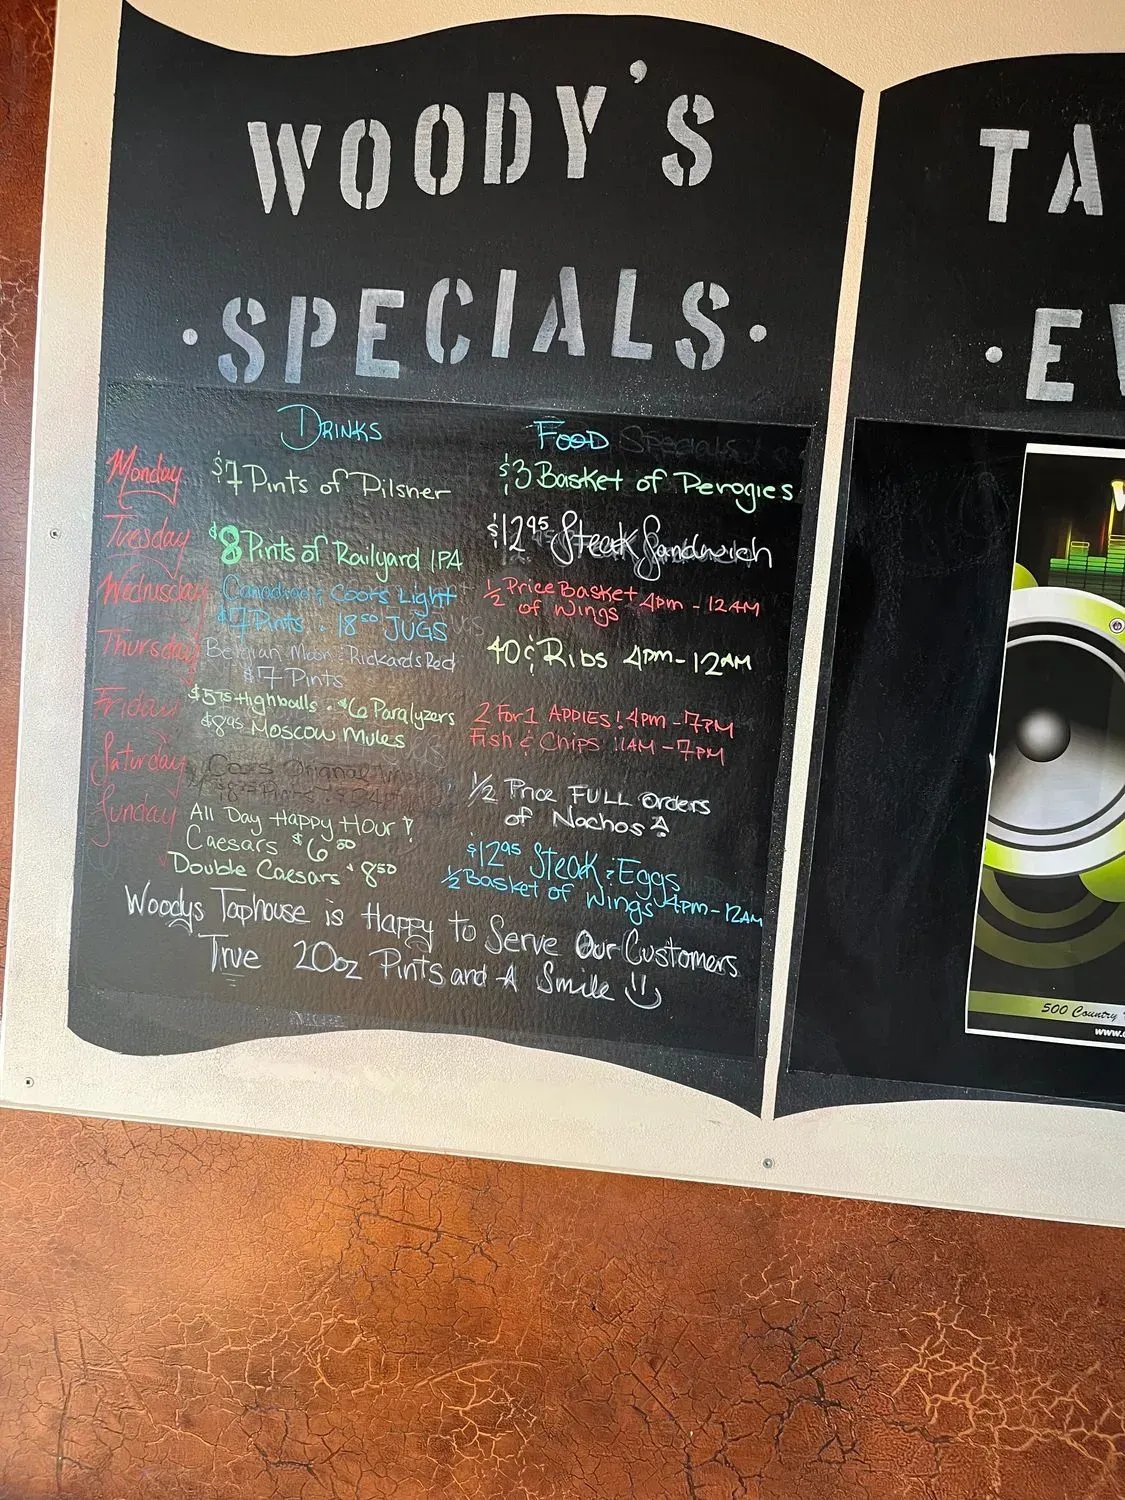 WOODY'S
·SPECIALS·
DRINKS
FOOD Specials
Monday
$7 Pints of Pilsner
$3 Basket of Perogies
Tuesday
$8 Pints of Railyard IPA
$12.95 Steak Sandwich
Wednesday
Canadian & Coors Light
$7 Pints & 18.50 JUGS
1/2 Price Basket 4pm - 12AM
of Wings
Thursday
Belgian Moon & Rickards Red
$7 Pints
40¢ Ribs 4pm - 12AM
Friday
$5.75 Highballs & $6 Paralyzers
$8.95 Moscow Mules
2 For 1 APPIES! 4pm - 7PM
Fish & Chips 11AM - 7PM
Saturday
Coors Original
1/2 Price FULL Orders
of Nachos
Sunday
All Day Happy Hour!
Caesars $6.50
Double Caesars $8.50
$12.95 Steak & Eggs
1/2 Basket of Wings 4pm - 12AM
Woodys Taphouse is Happy to Serve Our Customers
True 20oz Pints and A Smile
TA
·EV
500 Country
www.